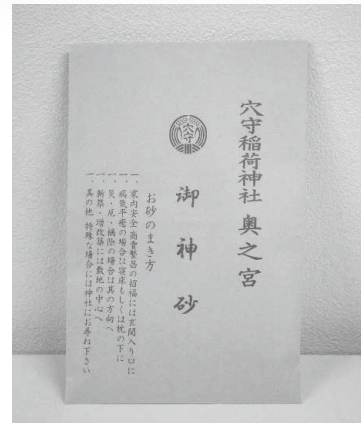 穴守稲荷神社 奥之宮
穴守
御神砂
お砂のまき方
一、家内安全 商売繁昌の招福には玄関入り口に
一、病気平癒の場合は寝床もしくは枕の下に
一、災・厄・禍除の場合は其の方向へ
一、新築・増改築には敷地の中心へ
一、其の他 特殊な場合には神社にお尋ね下さい